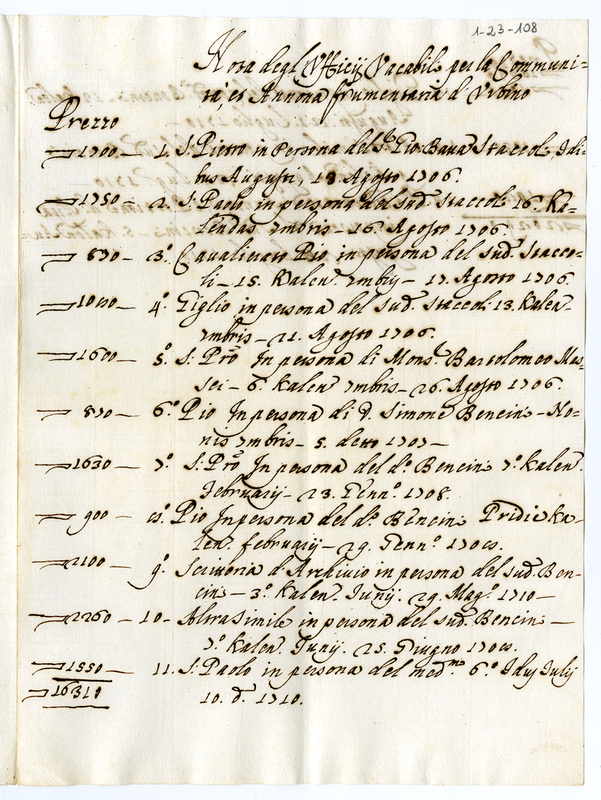 1-23-108
Nota degl'Uffitij Vacabili per la Communi-
tà, et Annona frumentaria d'Urbino
Prezzo
1700 — 1. S. Pietro in Persona del Sr. Gio Batta Staccoli Idi-
bus Augusti, 13 Agosto 1706.
1750 — 2. S. Paolo in persona del sud. Staccoli 16. Ka-
lendas 7mbris – 16. Agosto 1706.
870 — 3.° Cavalierato Pio in persona del sud. Stacco-
li – 15. Kalen. 7mbris – 17. Agosto 1706.
1040 — 4.° Giglio in persona del sud. Staccoli 13. Kalen.
7mbris – 21. Agosto 1706.
1600 — 5.° S. Pro In persona di Monsr. Bartolomeo Mas-
sei – 6. Kalen 7mbris – 26. Agosto 1706.
870 — 6.° Pio In persona di D. Simone Bencini – No-
nis 7mbris – 5. detto 1707 –
1630 — 7.° S. Pro In persona del d.° Bencini 7.° Kalen.
Februarij – 23. Genn.° 1708.
900 — 8.° Pio In persona del d.° Bencini Pridie Ka-
len. februarij – 29. Genn.° 1708.
2100 — 9.° Scrittoria d'Archivio in persona del sud. Ben-
cini – 3.° Kalen. Junij. 29. Mag.° 1710 –
2260 — 10 – Altra Simile in persona del sud. Bencini –
7.° Kalen. Junij. 25. Giugno 1708.
1550 — 11. S. Paolo in persona del med.mo 6.° Idus Julij
16310 10. d.° 1710.